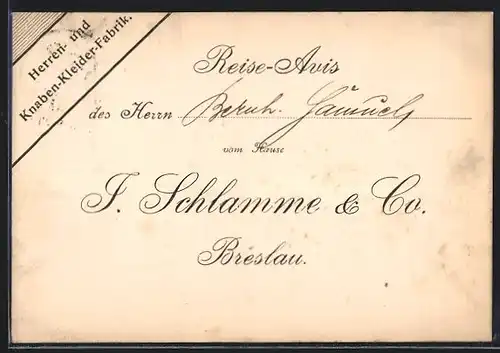 Herren- und
Knaben-Kleider-Fabrik.
Reise-Avis
des Herrn Bernh. Samuels
vom Hause
J. Schlamme & Co.
Breslau.